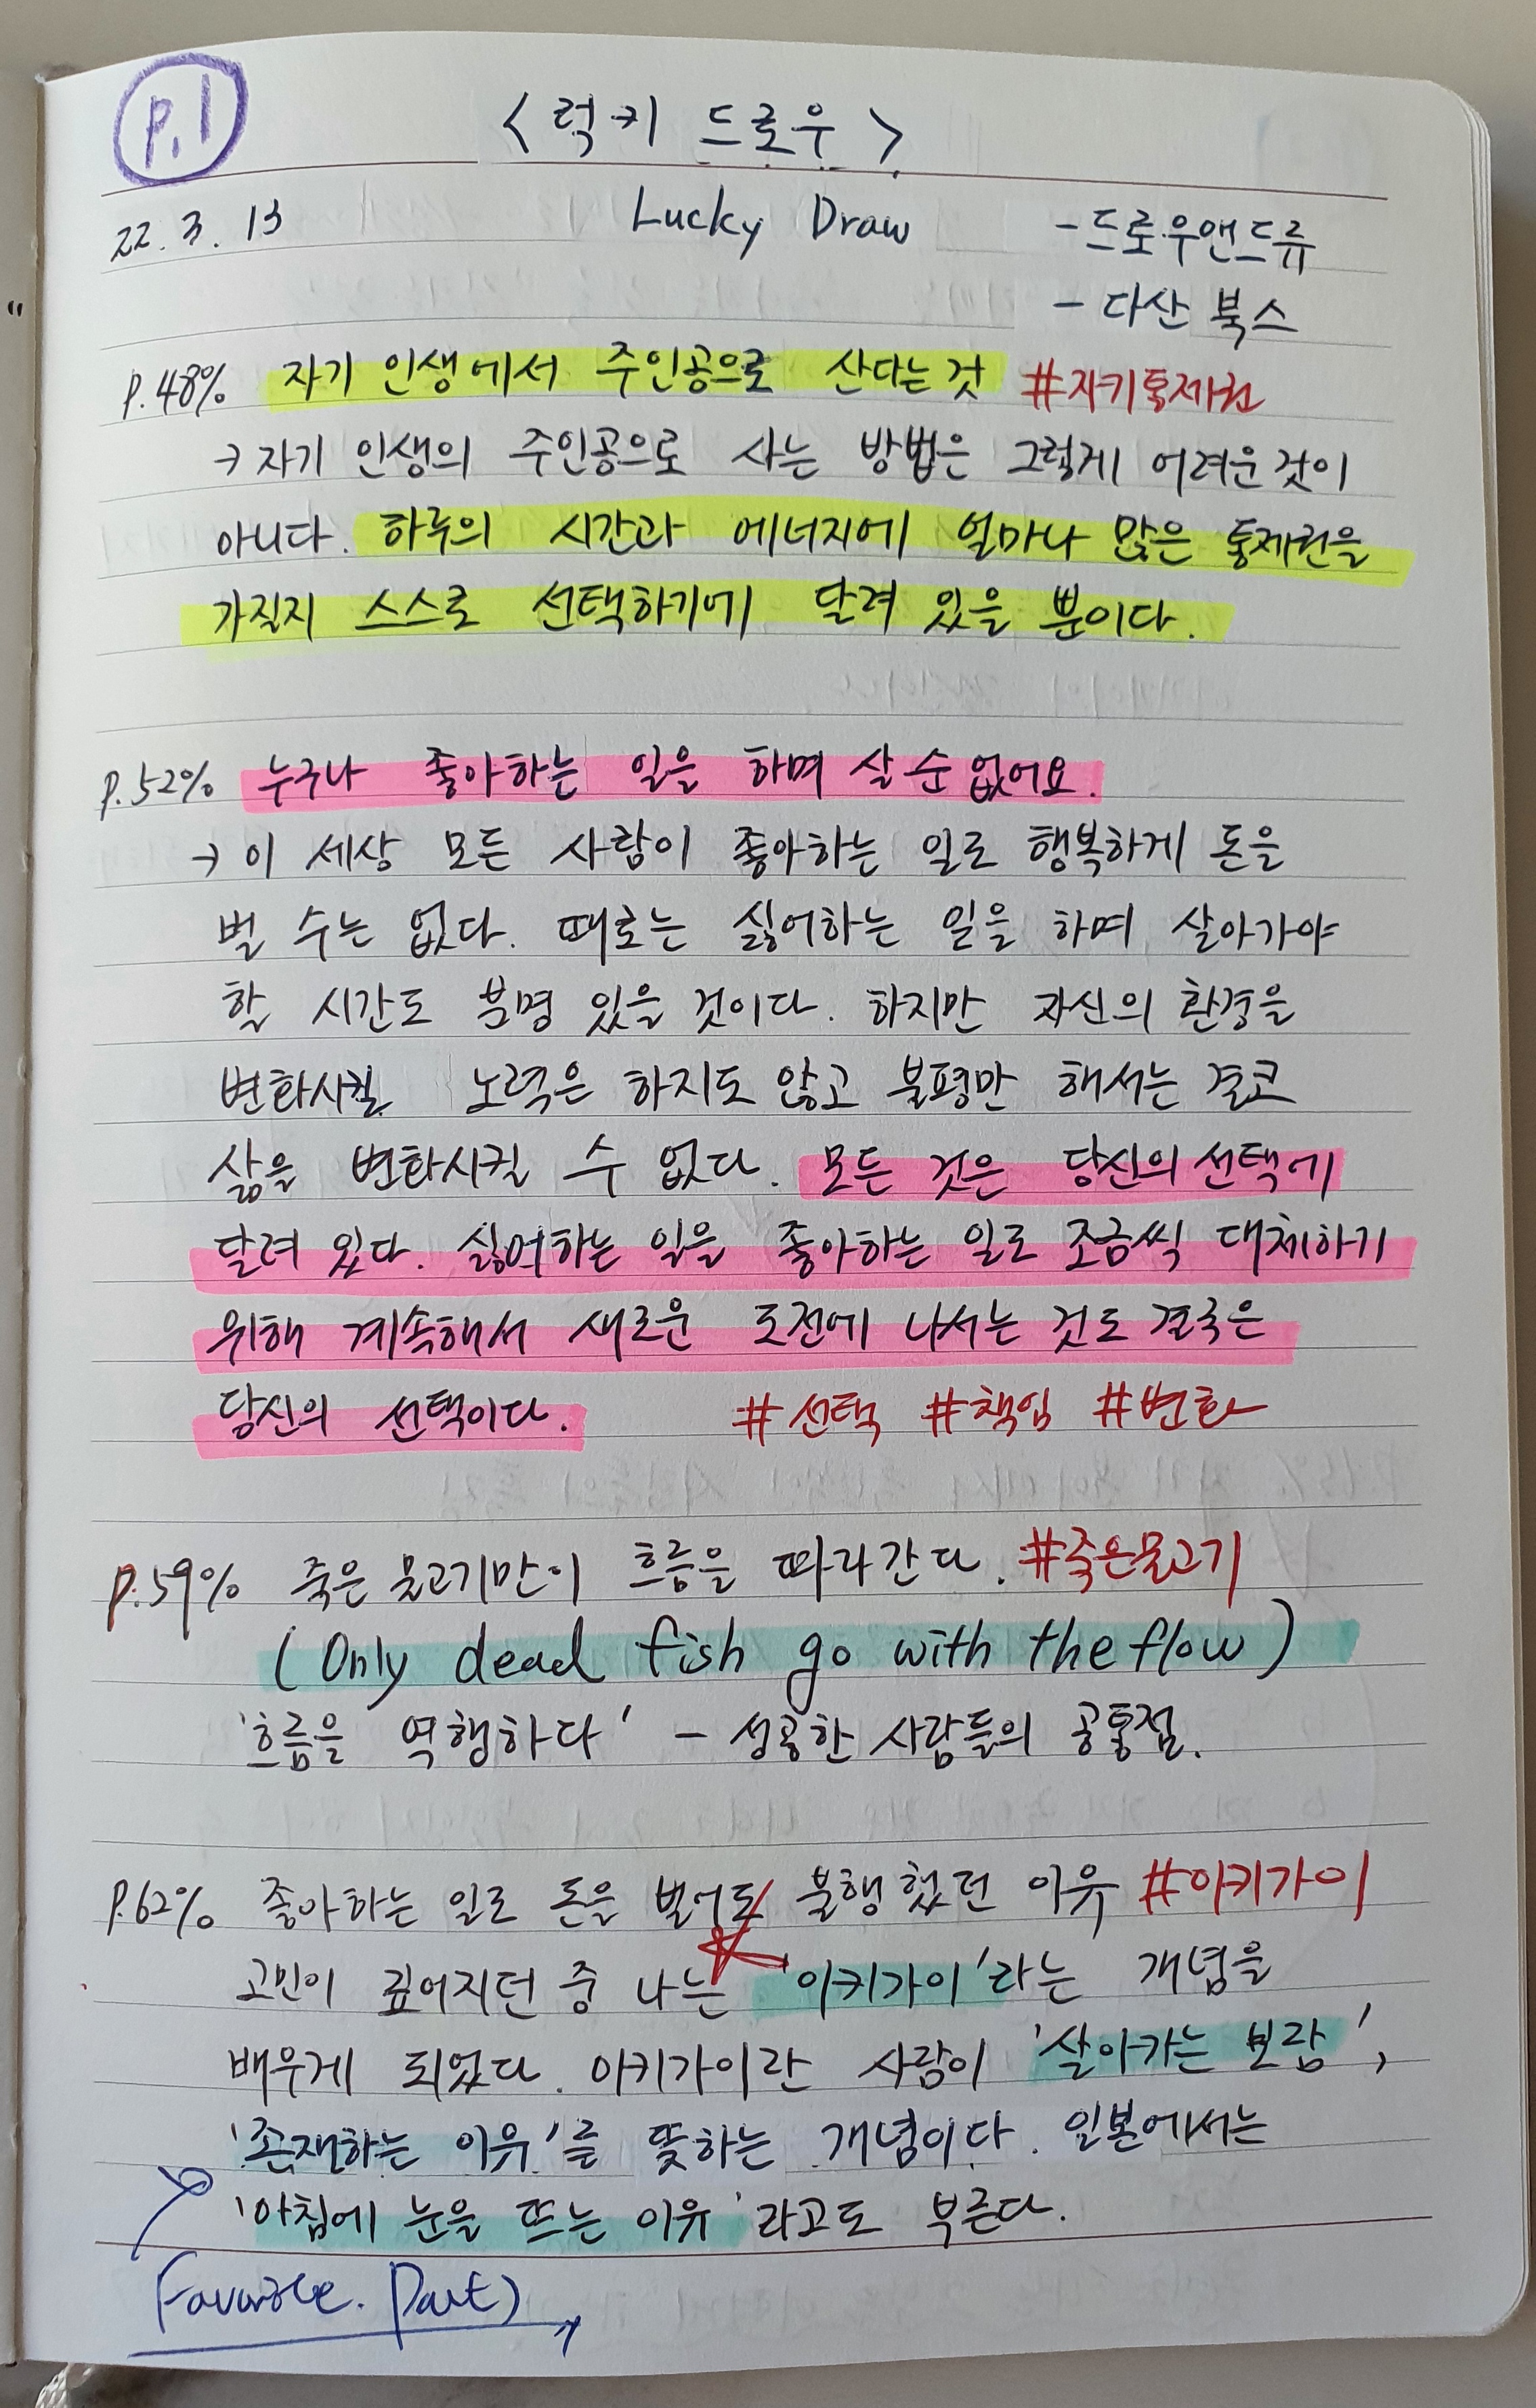 P.1
<럭키 드로우>
22. 3. 13 Lucky Draw - 드로우앤드류
- 다산 북스
P.48% 자기 인생에서 주인공으로 산다는 것 #자기통제권
→ 자기 인생의 주인공으로 사는 방법은 그렇게 어려운 것이
아니다. 하루의 시간과 에너지에 얼마나 많은 통제권을
가질지 스스로 선택하기에 달려 있을 뿐이다.
P.52% 누구나 좋아하는 일을 하며 살 순 없어요.
→ 이 세상 모든 사람이 좋아하는 일로 행복하게 돈을
벌 수는 없다. 때로는 싫어하는 일을 하며 살아가야
할 시간도 분명 있을 것이다. 하지만 자신의 환경을
변화시킬 노력은 하지도 않고 불평만 해서는 결코
삶을 변화시킬 수 없다. 모든 것은 당신의 선택에
달려 있다. 싫어하는 일을 좋아하는 일로 조금씩 대체하기
위해 계속해서 새로운 도전에 나서는 것도 결국은
당신의 선택이다. #선택 #책임 #변화
P.59% 죽은 물고기만이 흐름을 따라간다. #죽은물고기
(Only dead fish go with the flow)
'흐름을 역행하다' - 성공한 사람들의 공통점.
P.62% 좋아하는 일로 돈을 벌어도 불행했던 이유 #이키가이
고민이 깊어지던 중 나는 '이키가이'라는 개념을
배우게 되었다. 이키가이란 사람이 '살아가는 보람',
'존재하는 이유'를 뜻하는 개념이다. 일본에서는
'아침에 눈을 뜨는 이유'라고도 부른다.
Favorite. Part)